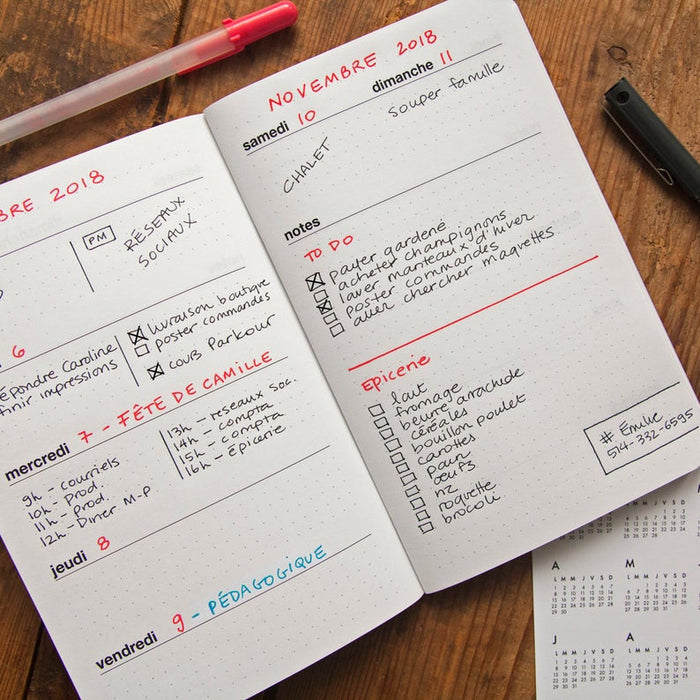 BRE 2018
PM
RÉSEAUX
SOCIAUX
6
épondre Caroline
finir impressions
livraison boutique
poster commandes
COUR Parkour
mercredi 7 - FÊTE DE CAMILLE
9h - courriels
10h - prod.
11h - prod.
12h - Diner M-P
13h - reseaux soc.
14h - compta
15h - compta
16h - épicerie
jeudi 8
vendredi 9 - PÉDAGOGIQUE
NOVEMBRE 2018
samedi 10
CHALET
dimanche 11
souper famille
notes
TO DO
payer gardené
acheter champignons
laver manteaux d'hiver
poster commandes
aller chercher maquettes
Epicerie
lait
fromage
beurre arachide
céréales
bouillon poulet
carottes
pain
oeufs
riz
roquette
brocoli
# Émilie
514-332-6595
A
L M M J V S D
M
L M M J V S D
J
L M M J V S D
A
L M M J V S D